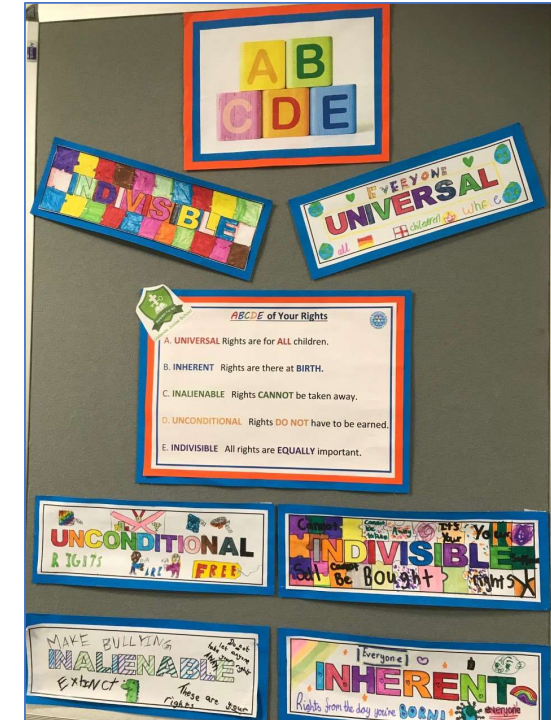 A B
C D E
INDIVISIBLE
EVERYONE
UNIVERSAL
all children
ABCDE of Your Rights
A. UNIVERSAL Rights are for ALL children.
B. INHERENT Rights are there at BIRTH.
C. INALIENABLE Rights CANNOT be taken away.
D. UNCONDITIONAL Rights DO NOT have to be earned.
E. INDIVISIBLE All rights are EQUALLY important.
UNCONDITIONAL
RIGITS ARE FREE
Cannot Away It's Your
INDIVISIBLE
Be Bought rights
MAKE BULLYING
INALIENABLE
EXtiNCT
These are your
rights
Everyone
INHERENT
Rights from the day you're BORN!
everyone